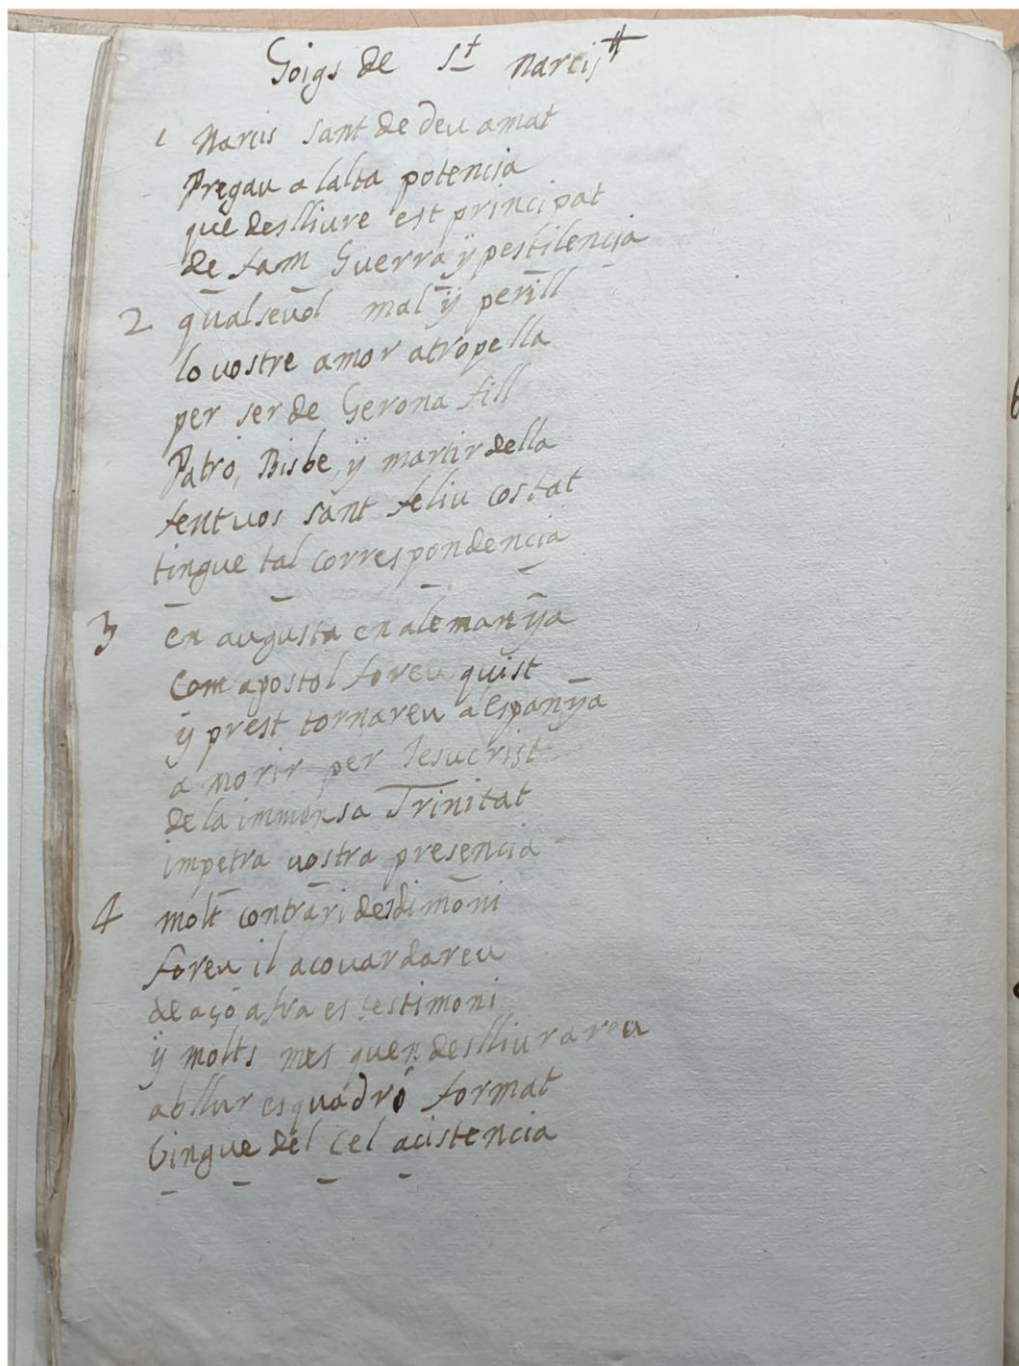 Goigs de St Narcis
1 Narcis sant de deu amat
Pregau a lalta potencia
que deslliure est principat
de fam Guerra ÿ pestilencia
2 qualsevol mal ÿ perill
lo vostre amor atropella
per ser de Gerona fill
Patró, Bisbe, ÿ martir della
fent vos sant feliu costat
tingue tal correspondencia
3 en augusta en alemanÿa
Com apostol foreu quist
ÿ prest tornareu a Espanÿa
a morir per Jesucrist
de la immensa Trinitat
impetra vostra presencia
4 molt contrari des dimoni
foreu il acovardareu
de açó afra es testimoni
ÿ molts mes quen deslliurareu
ab llur esquadró format
Vingue del Cel acistencia